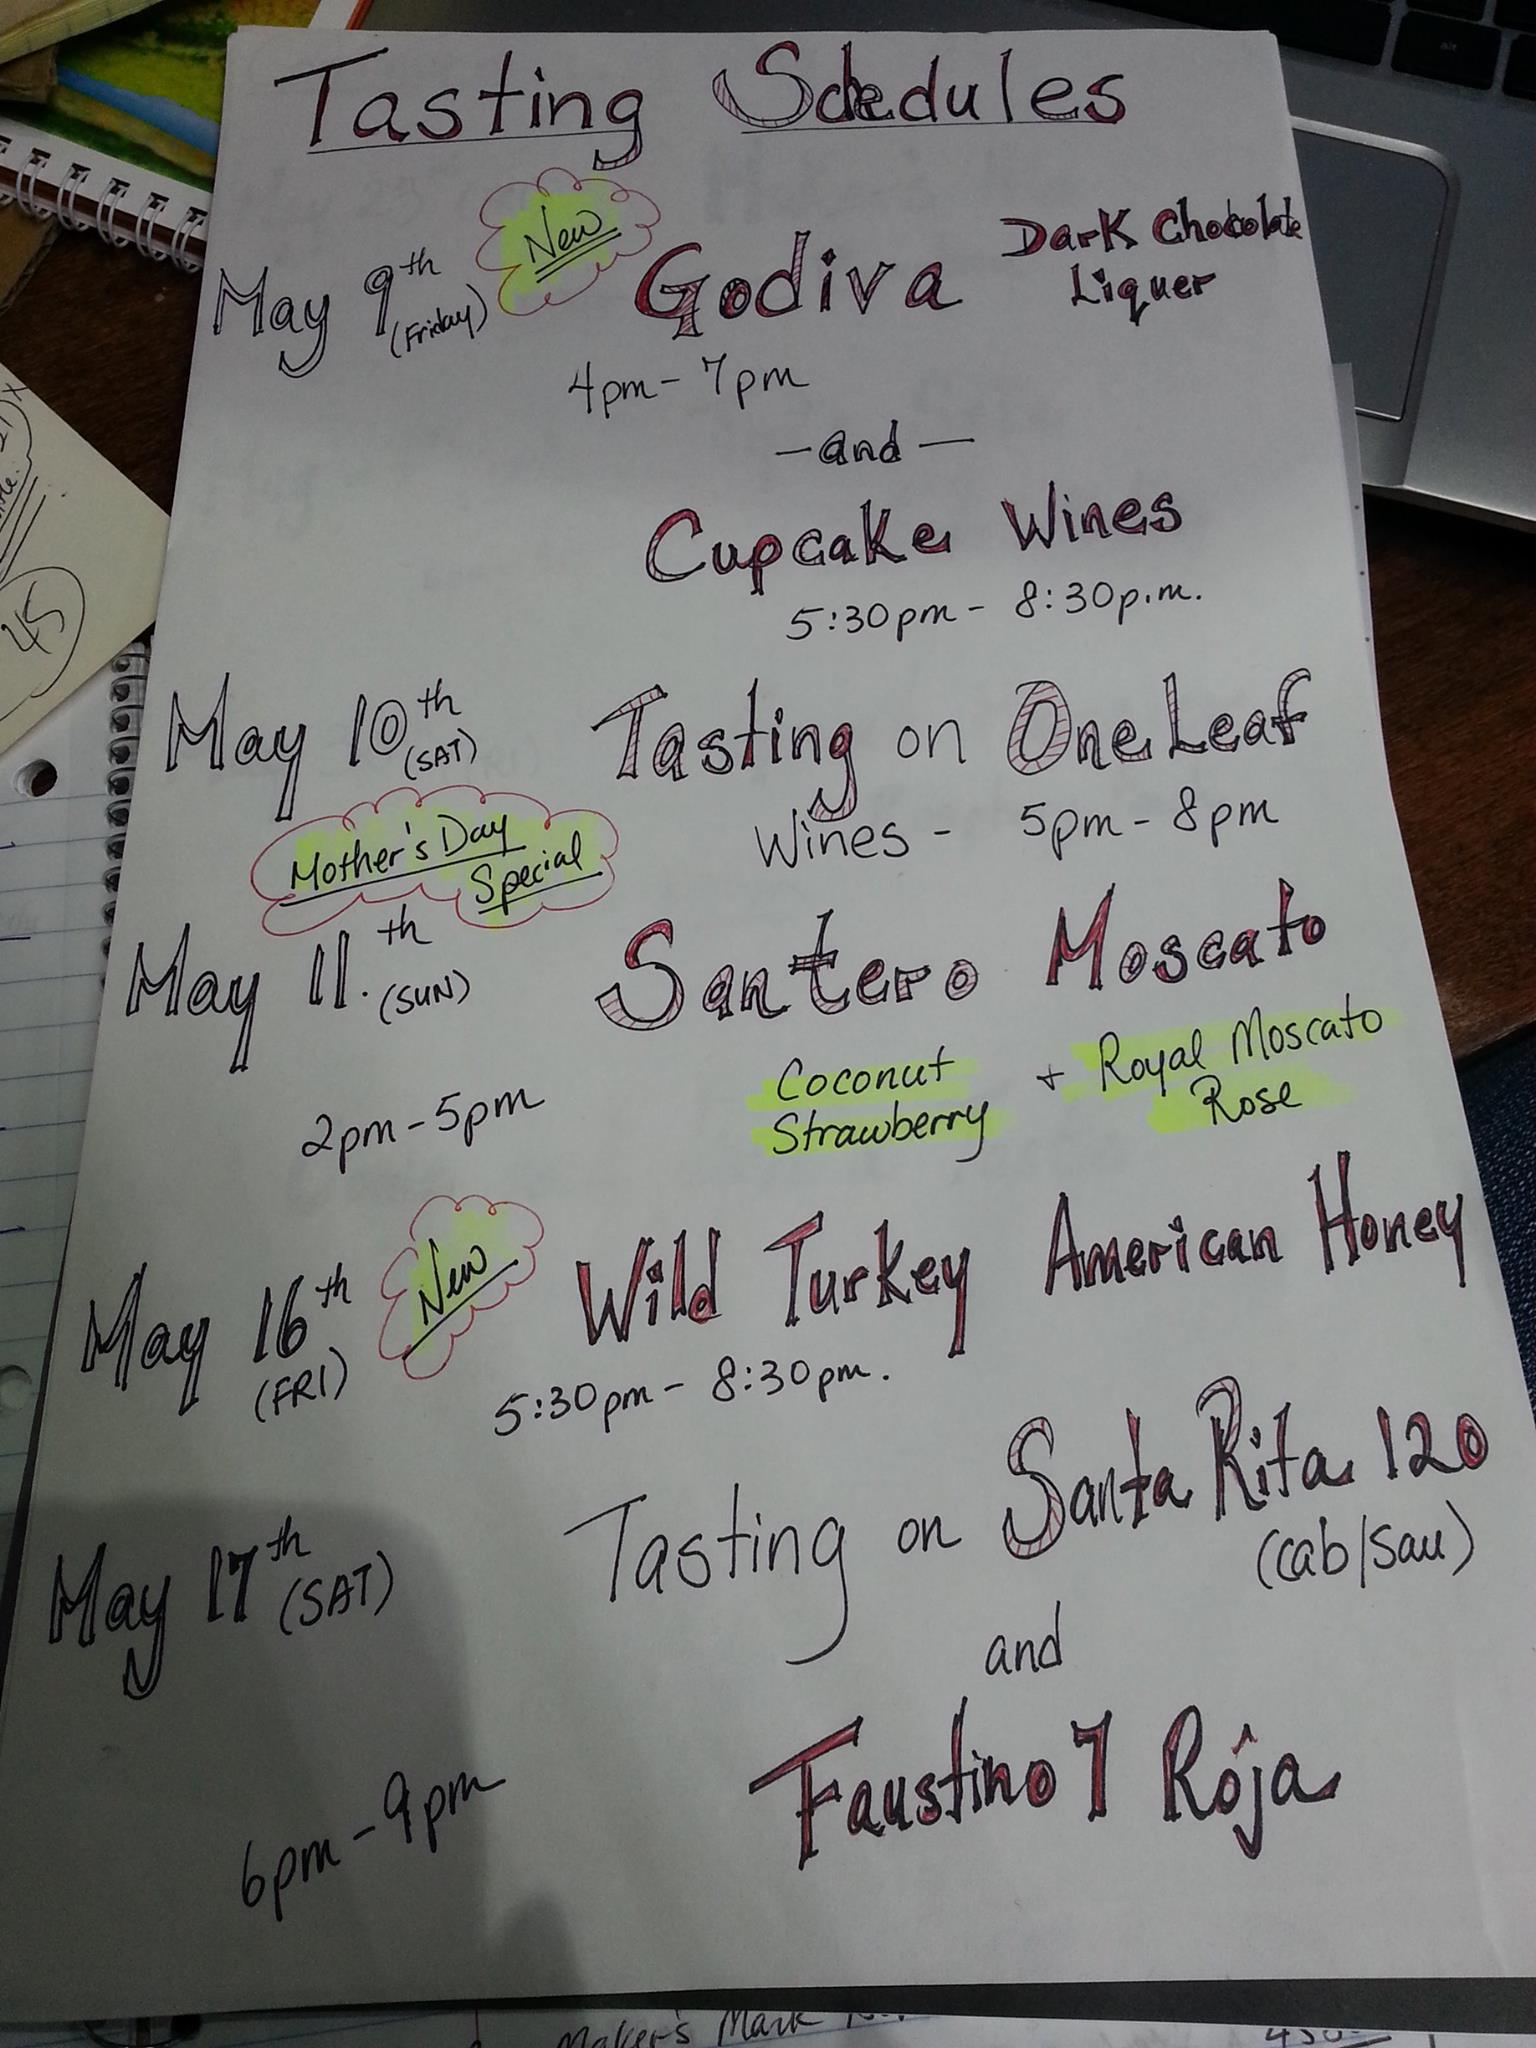 Tasting Schedules
May 9th (Friday) New Godiva Dark Chocolate
Liquer
4pm - 7pm
- and -
Cupcake Wines
5:30pm - 8:30p.m.
May 10th (SAT) Tasting on One Leaf
Wines - 5pm - 8pm
Mother's Day
Special
May 11.th (SUN) Santero Moscato
Coconut + Royal Moscato
Strawberry Rose
2pm - 5pm
May 16th (FRI) New Wild Turkey American Honey
5:30pm - 8:30pm.
May 17th (SAT) Tasting on Santa Rita 120
(cab/sau)
and
Faustino 7 Rôja
6pm - 9pm
45
alt
Maker's Mark